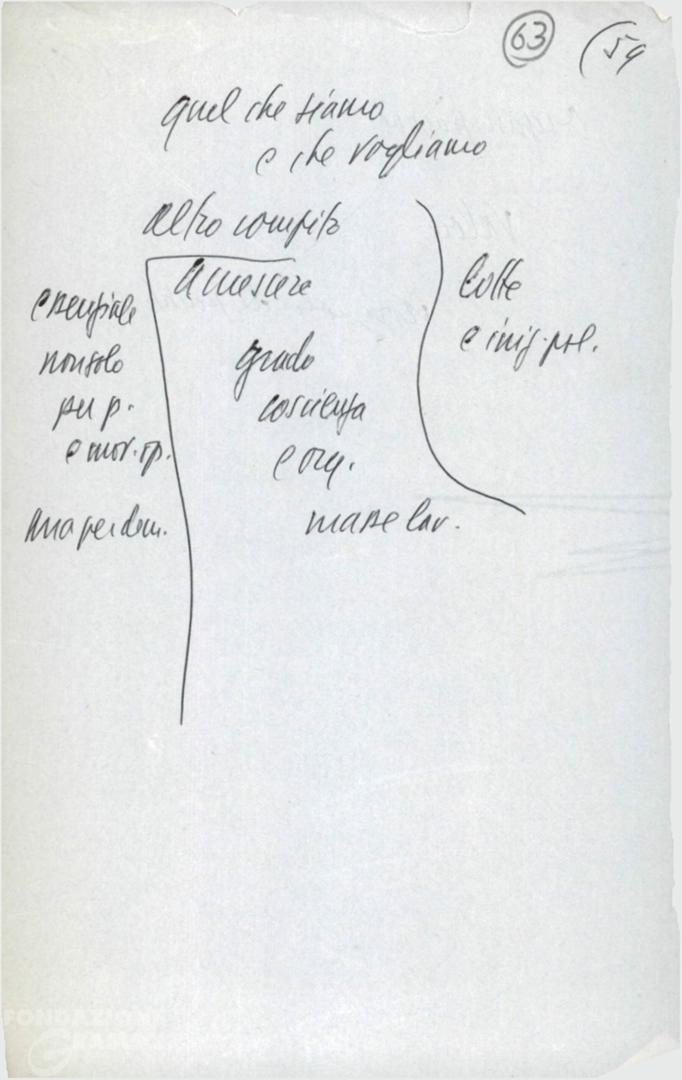 63 (59
quel che siamo
e che vogliamo
altro compito
accrescere
grado
coscienza
e org.
masse lav.
essenziale
non solo
per p.
e mov. op.
ma per dem.
lotte
e iniz. pol.
FONDAZIONE
GRAMSCI